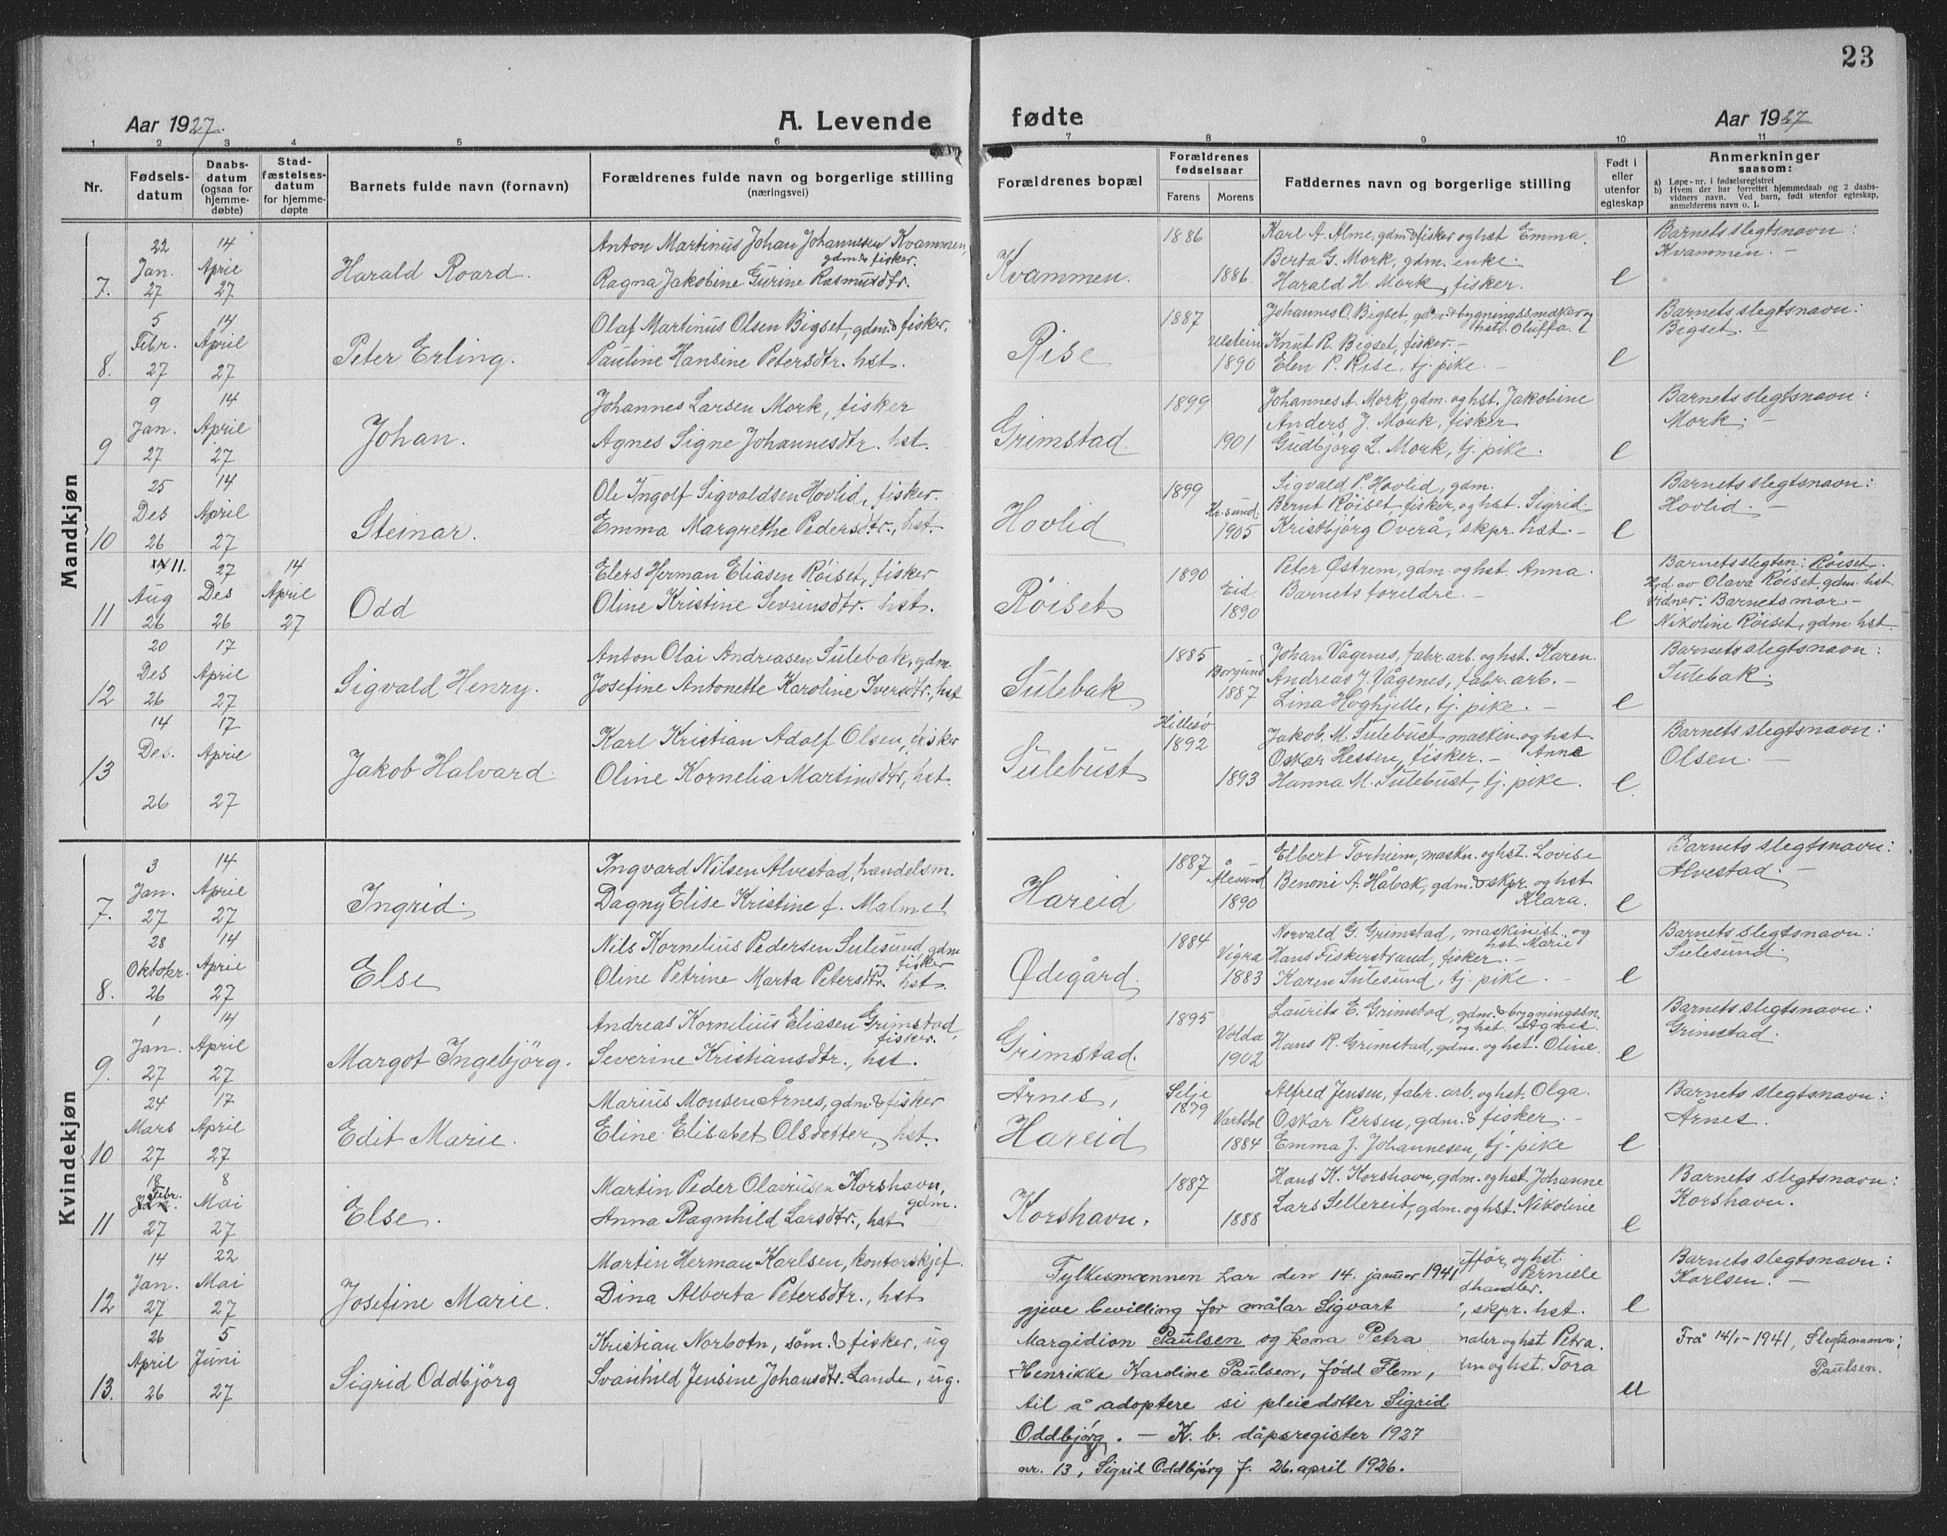 23
Aar 1927.
A. Levende
fødte
Aar 1927
1 2 3 4 5 6 7 8 9 10 11
Nr.
Fødsels-
datum
Daabs-
datum
(ogsaa for
hjemme-
døbte)
Stad-
fæstelses-
datum
for hjemme-
døpte
Barnets fulde navn (fornavn)
Forældrenes fulde navn og borgerlige stilling
(næringsvei)
Forældrenes bopæl
Forældrenes
fødselsaar
Farens
Morens
Faddernes navn og borgerlige stilling
Født i
eller
utenfor
egteskap
Anmerkninger
saasom:
a) Løpe-nr. i fødselsregistret
b) Hvem der har forrettet hjemmedaab og 2 daabs-
vidners navn. Ved barn, født utenfor egteskap,
anmelderens navn o. l.
Mandkjøn
7.
22 Jan. 27
14 April 27
Harald Roard.
Anton Martinus Johan Johannesen Kvammen,
gdm. & fisker.
Ragna Jakobine Gurine Rasmusdtr.
Kvammen.
1886
1886.
Karl A. Alme, gdm & fisker og hst Emma.
Berta G. Mork, gdm. enke.
Harald H. Mork, fisker.
e
Barnets slegtsnavn:
Kvammen. —
8.
5 Febr. 27
14 April 27
Peter Erling.
Olaf Martinus Olsen Bigset, gdm. & fisker.
Pauline Hansine Petersdtr. hst.
Rise
1887
Ulstein
1890
Johannes O. Bigset, gdm & bygningssnedker og
hst. Oluffa.
Knut R. Bigset, fisker. —
Elen P. Rise, tj. pike. —
e
Barnets slegtsnavn:
Bigset. —
9
9 Jan. 27
14 April 27
Johan.
Johannes Larsen Mork, fisker
Agnes Signe Johannesdtr. hst.
Grimstad.
1899
1901
Johannes A. Mork, gdm. og hst. Jakobine
Anders J. Mork, fisker
Gudbjörg L. Mork, tj. pike.
e
Barnets slegtsnavn:
Mork. —
10
25 Des 26
14 April 27
Steinar.
Ole Ingolf Sigvaldsen Hovlid, fisker.
Emma Margrethe Pedersdtr., hst.
Hovlid
1899
Kr.sund
1905
Sigvald P. Hovlid, gdm.
Bernt Röiset, fisker, og hst. Sigrid.
Kristbjörg Overå, skpr. hst. —
e
Barnets slegtsnavn:
Hovlid. —
11
11. Aug 26
27 Des 26
14 April 27
Odd
Elers Herman Eliasen Röiset, fisker
Oline Kristine Sevrinsdtr. hst.
Röiset
1890
Eid
1890
Peter Østrem, gdm. og hst. Anna.
Barnets foreldre. —
e
Barnets slegtsn: Röiset.
Hjd. av Olava Röiset, gdm. hst.
vidner: Barnets mor —
Nikoline Röiset, gdm. hst.
12
20 Des 26
17 April 27
Sigvald Henry.
Anton Olai Andreasen Sulebak, gdm.
Josefine Antonette Karoline Iversdtr., hst
Sulebak
1885
Borgund
1887
Johan Vågenes, fabr. arb. og hst. Karen.
Andreas J. Vågenes, fabr. arb. —
Lina Höghjelle, tj. pike. —
e
Barnets slegtsnavn:
Sulebak.
13
14 Des. 26
17 April 27
Jakob Halvard.
Karl Kristian Adolf Olsen, fisker
Oline Kornelia Martinsdtr, hst.
Sulebust
Hillesö
1892
1893
Jakob M. Sulebust maskin. og hst
Anne
Oskar Hessen, fisker. —
Hanna M. Sulebust, tj. pike.
e.
Barnets slegtsnavn:
Olsen. —
Kvindekjøn
7.
3 Jan. 27
14 April 27
Ingrid.
Ingvard Nilsen Alvestad, handelsm.
Dagny Elise Kristine f. Malme
Hareid
1887
Ålesund
1890
Elbert Torheim, maskn. og hst. Lovise
Benoni A. Håbak, gdm. & skpr. og hst
Klara.
e
Barnets slegtsnavn:
Alvestad. —
8.
28 Oktobr. 26
14 April 27
Else
Nils Kornelius Pedersen Sulesund, gdm
og fisker
Oline Petrine Marta Petersdtr. hst.
Ødegård.
1884
Vigra
1883
Norvald G. Grimstad, maskinist. og
hst. Marie
Hans Fiskerstrand, fisker. —
Karen Sulesund, tj. pike. —
e
Barnets slegtsnavn:
Sulesund.
9.
1 Jan. 27
14 April 27
Margot Ingebjörg.
Andreas Kornilius Eliasen Grimstad,
fisker.
Severine Kristiansdtr., hst.
Grimstad.
1895
Volda
1902
Laurits E. Grimstad, gdm. & bygningssn.
og hst. Agnes.
Hans R. Grimstad, gdm. og hst. Oline.
e
Barnets slegtsnavn:
Grimstad.
10
24 Mars 27
17 April 27
Edit Marie.
Marius Monsen Årnes, gdm. & fisker
Eline Elisabet Olsdotter, hst.
Årnes,
Hareid
Selje
1879
Vartdal
1884
Alfred Jensen, fabr. arb. og hst. Olga.
Oskar Persen, gdm. & fisker. —
Emma J. Johannesen, tj. pike
e
Barnets slegtsnavn:
Årnes.
11
18 Febr. 27
8 Mai 27
Else.
Martin Peder Olavusen Korshavn,
gdm.
Anna Ragnhild Larsdtr., hst
Korshavn.
1887
1888
Hans K. Korshavn, gdm. og hst. Johanne
Lars Sellereit, gdm. og hst. Nikoline
e
Barnets slegtsnavn:
Korshavn.
12
14 Jan. 27
22 Mai 27
Josefine Marie.
Martin Herman Karlsen, kontorskjef.
Dina Alberta Petersdtr., hst
og hst.
Perniele
dhandler.
, skpr. hst.
e
Barnets slegtsnavn:
Karlsen. —
13.
26 April 26
5 Juni 27
Sigrid Oddbjörg
Kristian Norbotn, söm. & fisker, ug
Svanhild Jensine Johansdtr. Lande, ug.
og hst Petra.
og hst. Tora
u
Frå 14/1-1941, Slegtsnamn:
Paulsen.
Fylkesmannen har den 14. januar 1941
gjeve bevilling for målar Sigvart
Margidion Paulsen og kona Petra
Henrikke Karoline Paulsen, född Flem,
til å adoptere si pleiedotter Sigrid
Oddbjörg. — K. b. dåpsregister 1927
nr. 13, Sigrid Oddbjörg f. 26. april 1926.